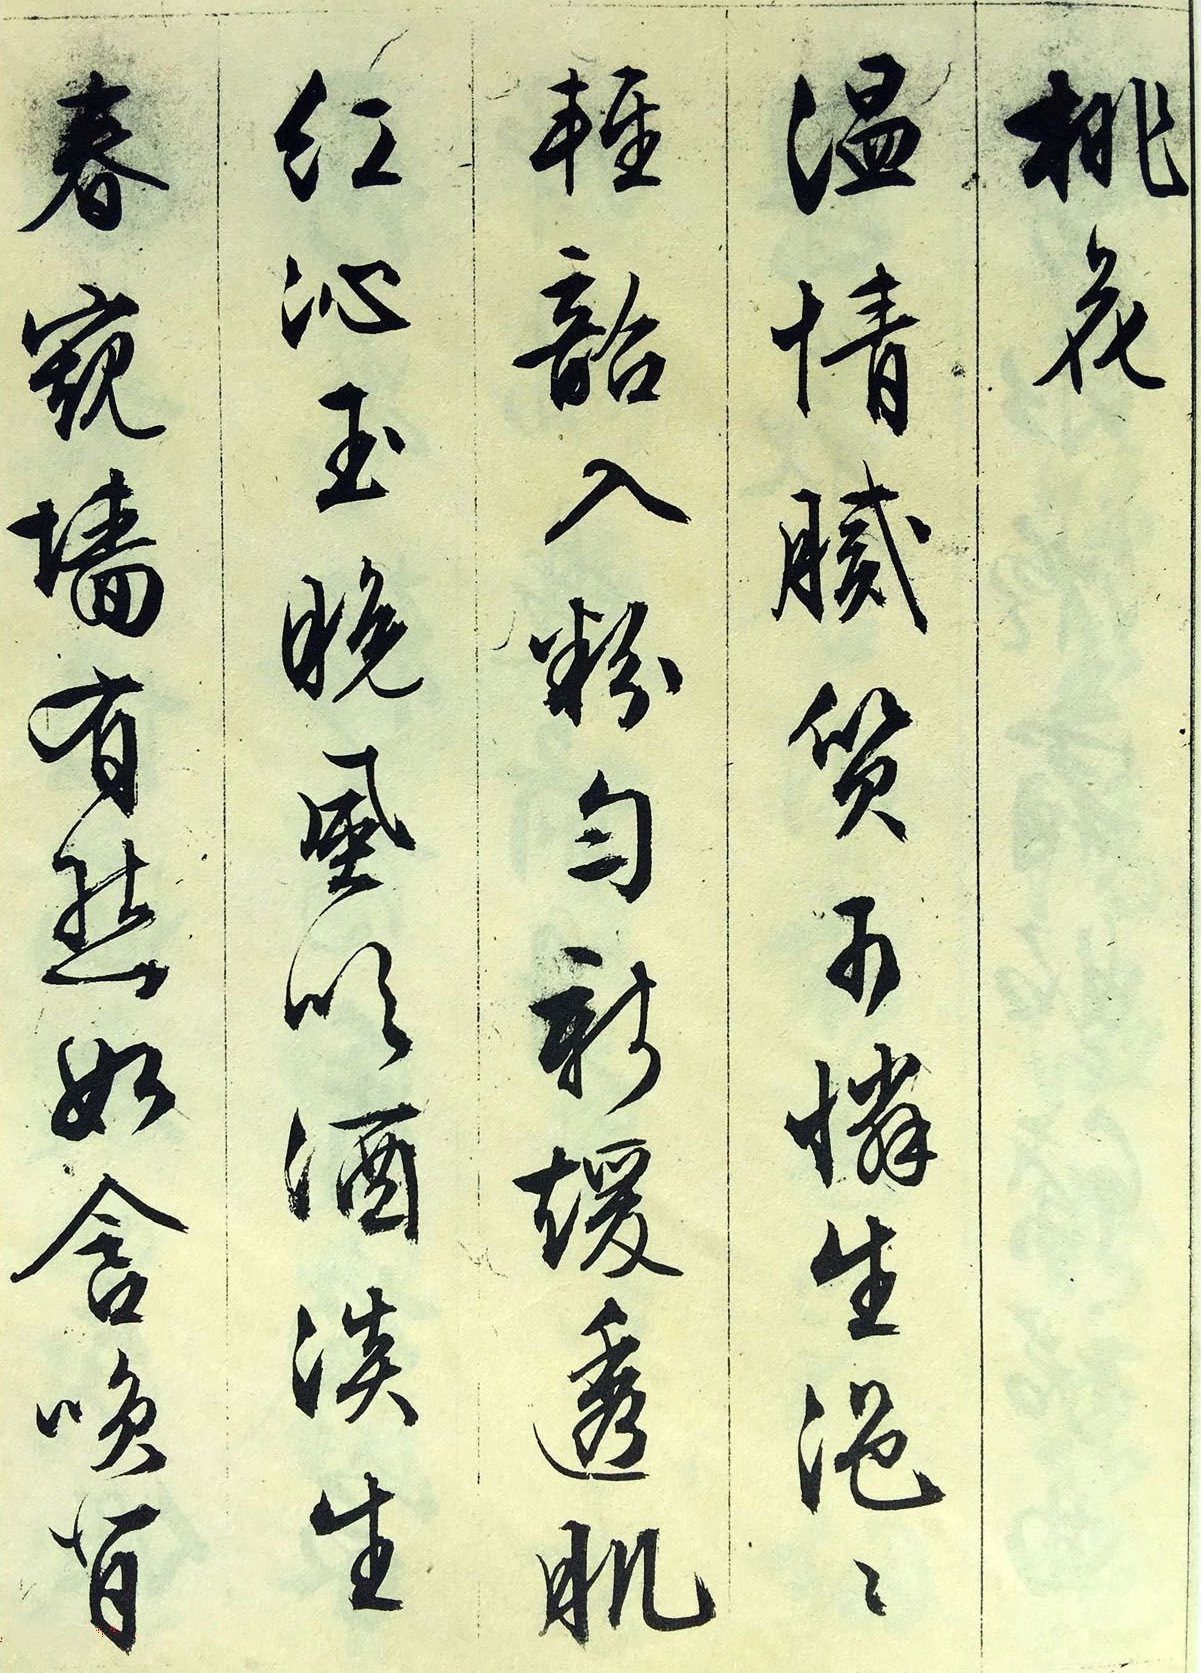 桃花
温情膩質可憐生浥〻
輕韶入粉勻新煖透肌
紅沁玉晚風吹酒淡生
春窺墻有態如含咲背